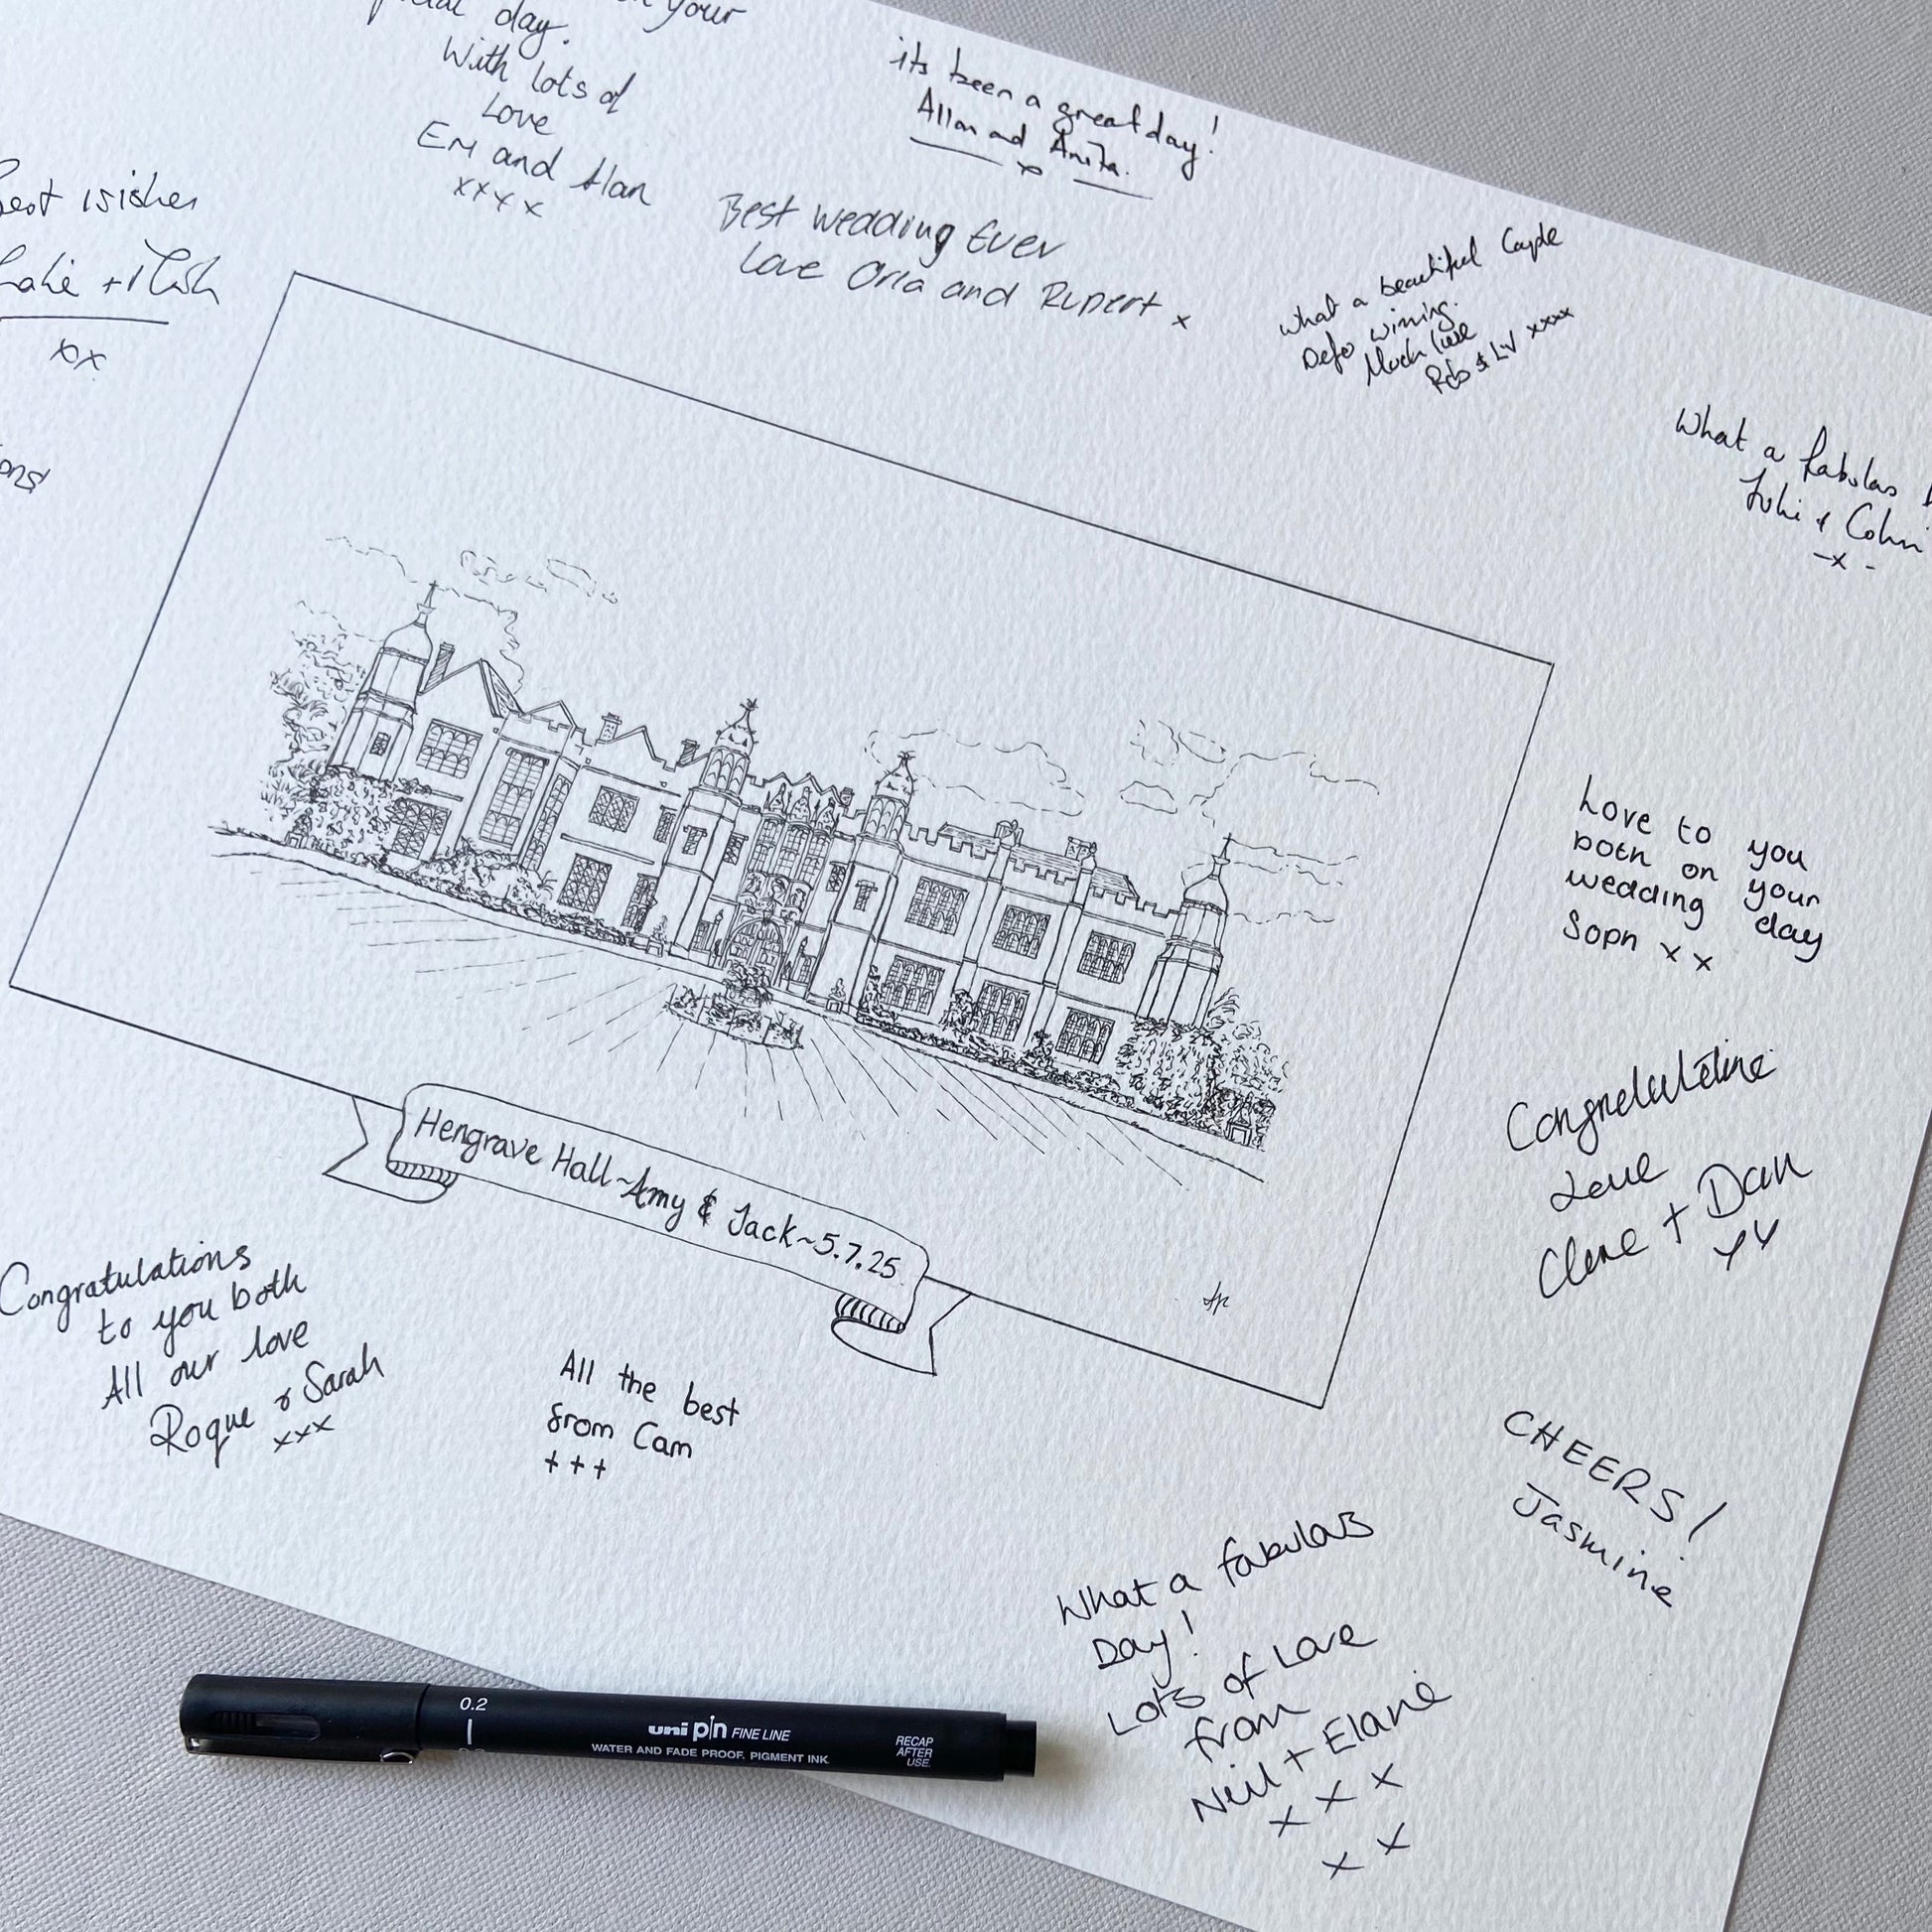 day.
your
With lots of
Love
Em and Alan
xxxx
its been a great day!
Allan and Anita.
x
Best Wedding Ever
Love Orla and Rupert x
What a beautiful
Defo winning.
Much love
Rob & Liv xxxx
wishes
xx
What a fabulas
& Colin
-x-
Love to you
both on your
wedding day
Soph x x
Hengrave Hall~Amy & Jack~5.7.25
Love
+ Dan
CHEERS!
Jasmine
Congratulations
to you both
All our love
Roque & Sarah
xxx
All the best
from Cam
+++
What a fabulous
Day!
Lots of Love
from
Neil + Elaine
x x x
x x
0.2
uni pin FINE LINE
WATER AND FADE PROOF. PIGMENT INK.
RECAP
AFTER
USE.